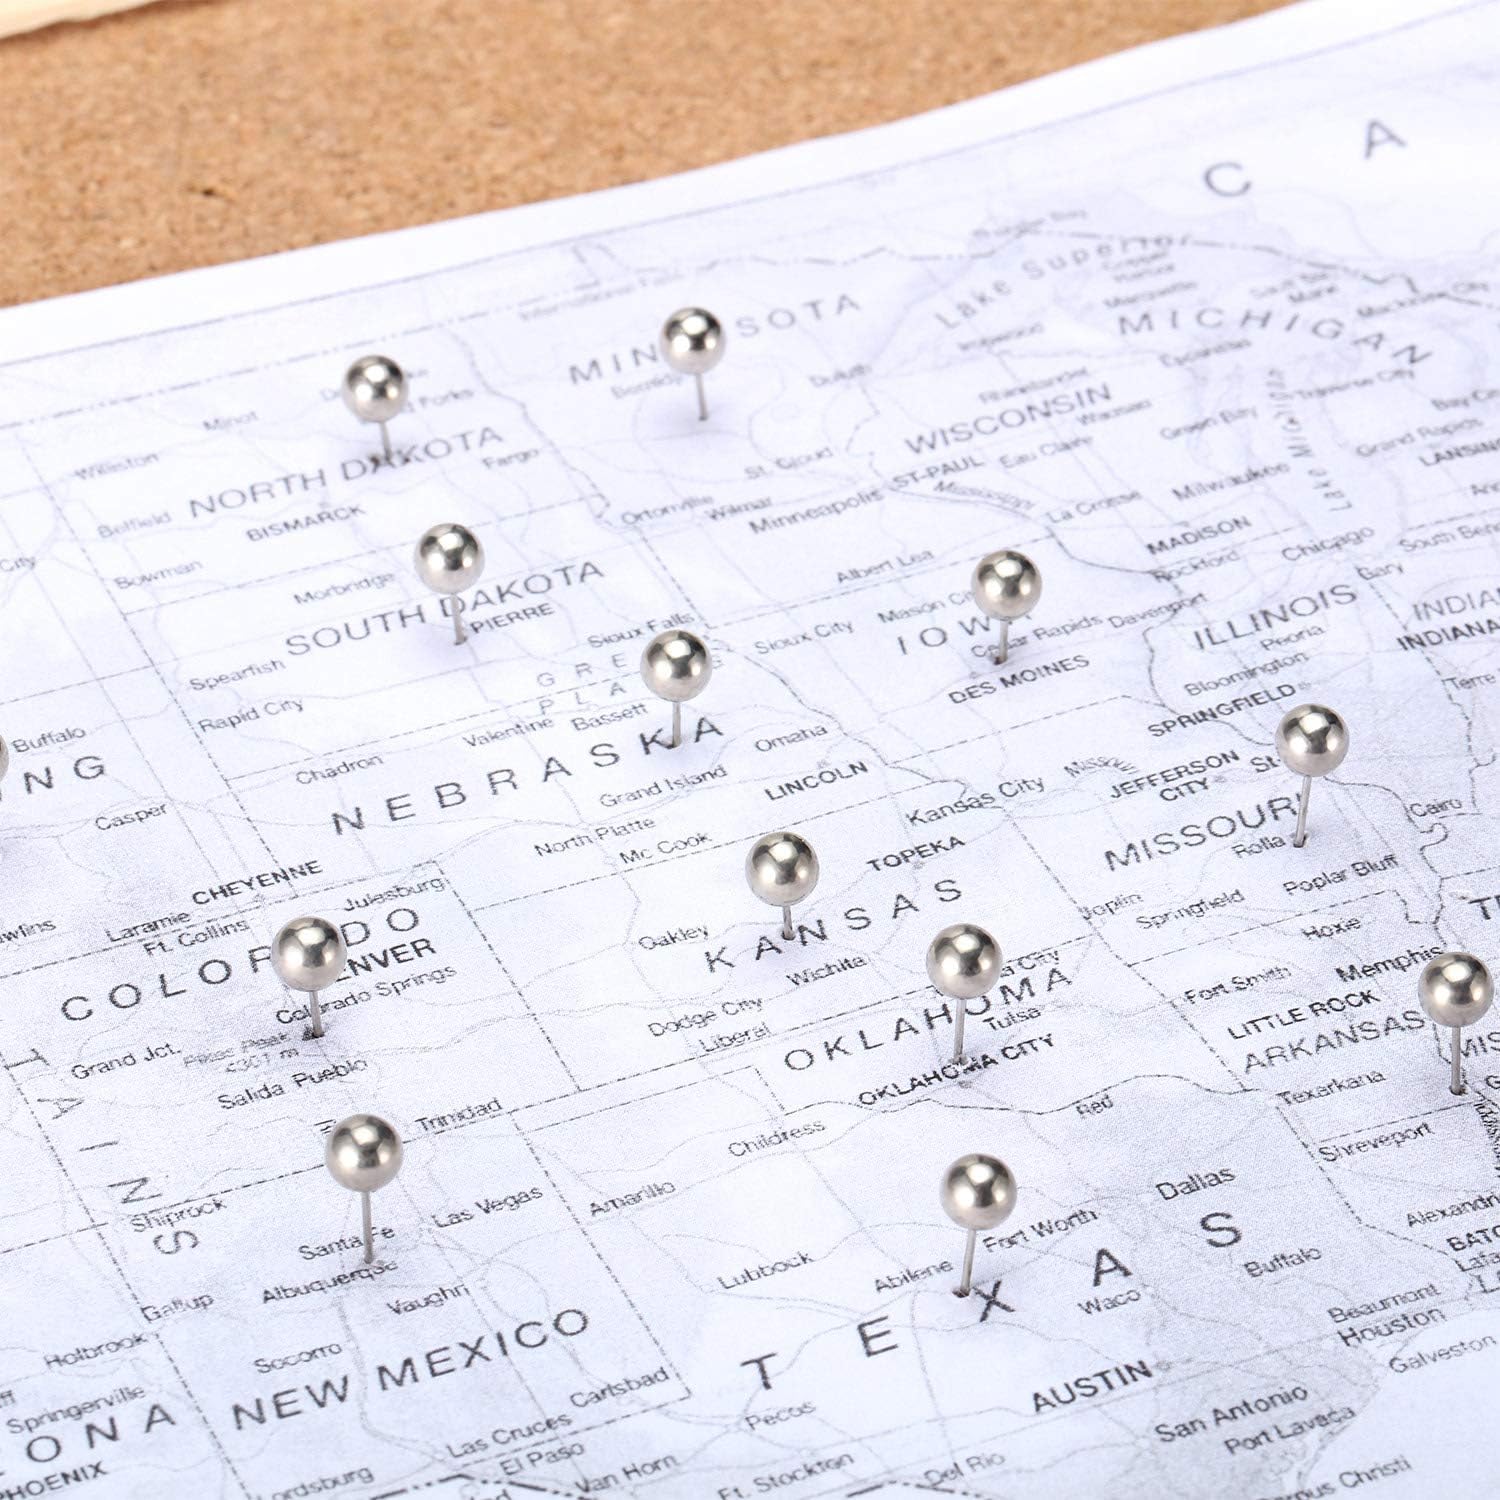 C A
Lake Superior
MICHIGAN
SOTA
MIN
Duluth
Minot
Forks
Williston
NORTH DAKOTA
Fargo
St. Cloud
WISCONSIN
Wausau
Green Bay
Traverse City
Grand Rapids
Belfield
BISMARCK
Ortonville
Wilmar
Minneapolis
ST-PAUL
Eau Claire
Mississippi
La Crosse
Milwaukee
Lake Mi
LANSIN
City
Bowman
Morbridge
SOUTH DAKOTA
PIERRE
Albert Lea
MADISON
Rockford
Chicago
Gary
South Ben
Spearfish
Sioux Falls
Sioux City
Mason Ci
IOW
Cedar Rapids
Davenport
ILLINOIS
Peoria
INDIA
INDIANA
Rapid City
G R E
P L A
Valentine
Bassett
DES MOINES
Bloomington
SPRINGFIELD
Terre
Buffalo
NG
Chadron
NEBRASKA
Omaha
Grand Island
LINCOLN
Kansas City
JEFFERSON
CITY
St-
Casper
North Platte
Mc Cook
TOPEKA
MISSOURI
Rolla
Cairo
CHEYENNE
Julesburg
Laramie
Ft. Collins
wlins
Oakley
KANSAS
Wichita
Joplin
Springfield
Poplar Bluff
Hoxie
COLOR DO
ENVER
Colorado Springs
Dodge City
Liberal
a City
OKLAHOMA
Tulsa
OKLAHOMA CITY
Fort Smith
Memphis
LITTLE ROCK
ARKANSAS
MIS
Grand Jct.
4301 m
Salida
Pueblo
Trinidad
Childress
Red
Texarkana
Shreveport
T A I N S
Shiprock
Santa Fe
Las Vegas
Amarillo
Dallas
Fort Worth
Alexandri
BATO
Lafa
Gallup
Albuquerque
Vaughn
Lubbock
Abilene
TEXAS
Waco
Buffalo
Beaumont
Houston
Galveston
Holbrook
Socorro
NEW MEXICO
Carlsbad
Pecos
AUSTIN
San Antonio
Port Lavaca
Springerville
ONA
PHOENIX
Las Cruces
El Paso
Lordsburg
Van Horn
Ft. Stockton
Del Rio
rpus Christi